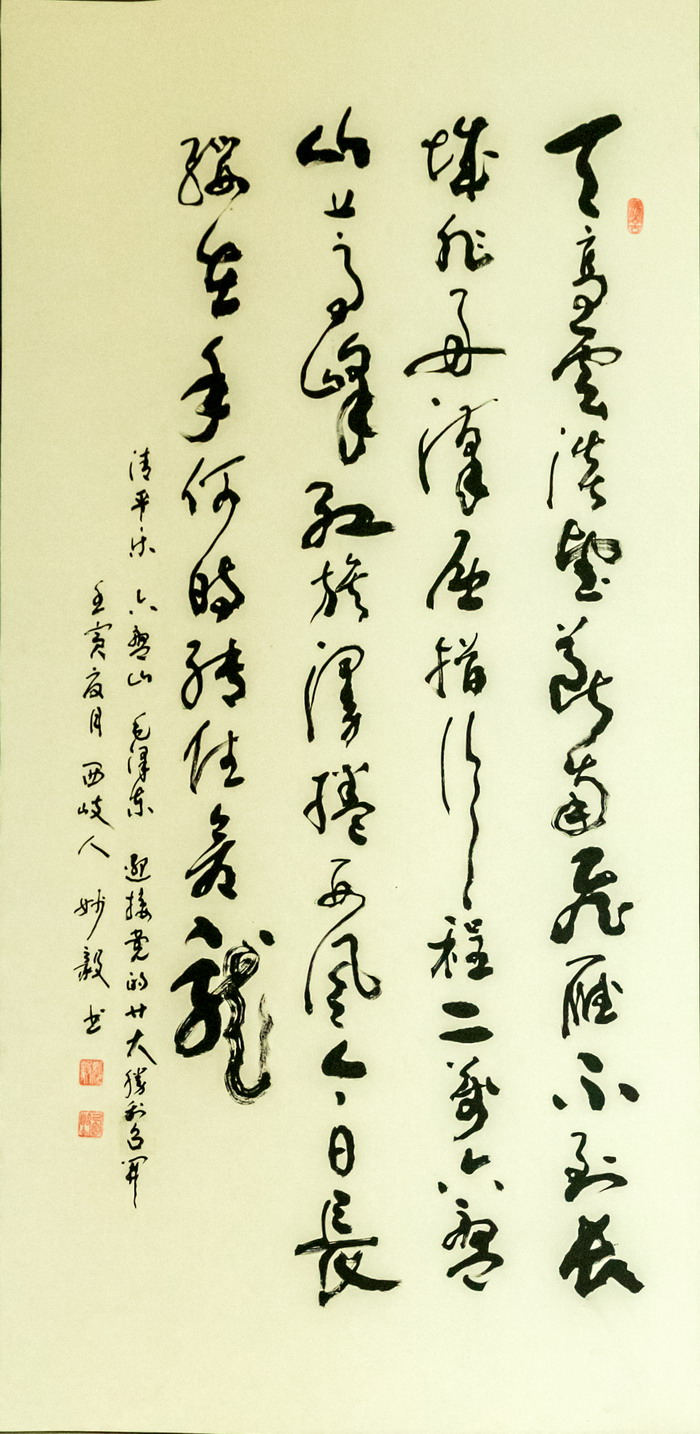 天高雲淡望斷南飛雁不到長
城非好漢屈指行程二萬六盤
山上高峰紅旗漫捲西風今日長
纓在手何時縛住蒼龍
清平樂 六盤山 毛澤東 迎接党的廿大勝利召開
壬寅夏月 西岐人 妙毅书